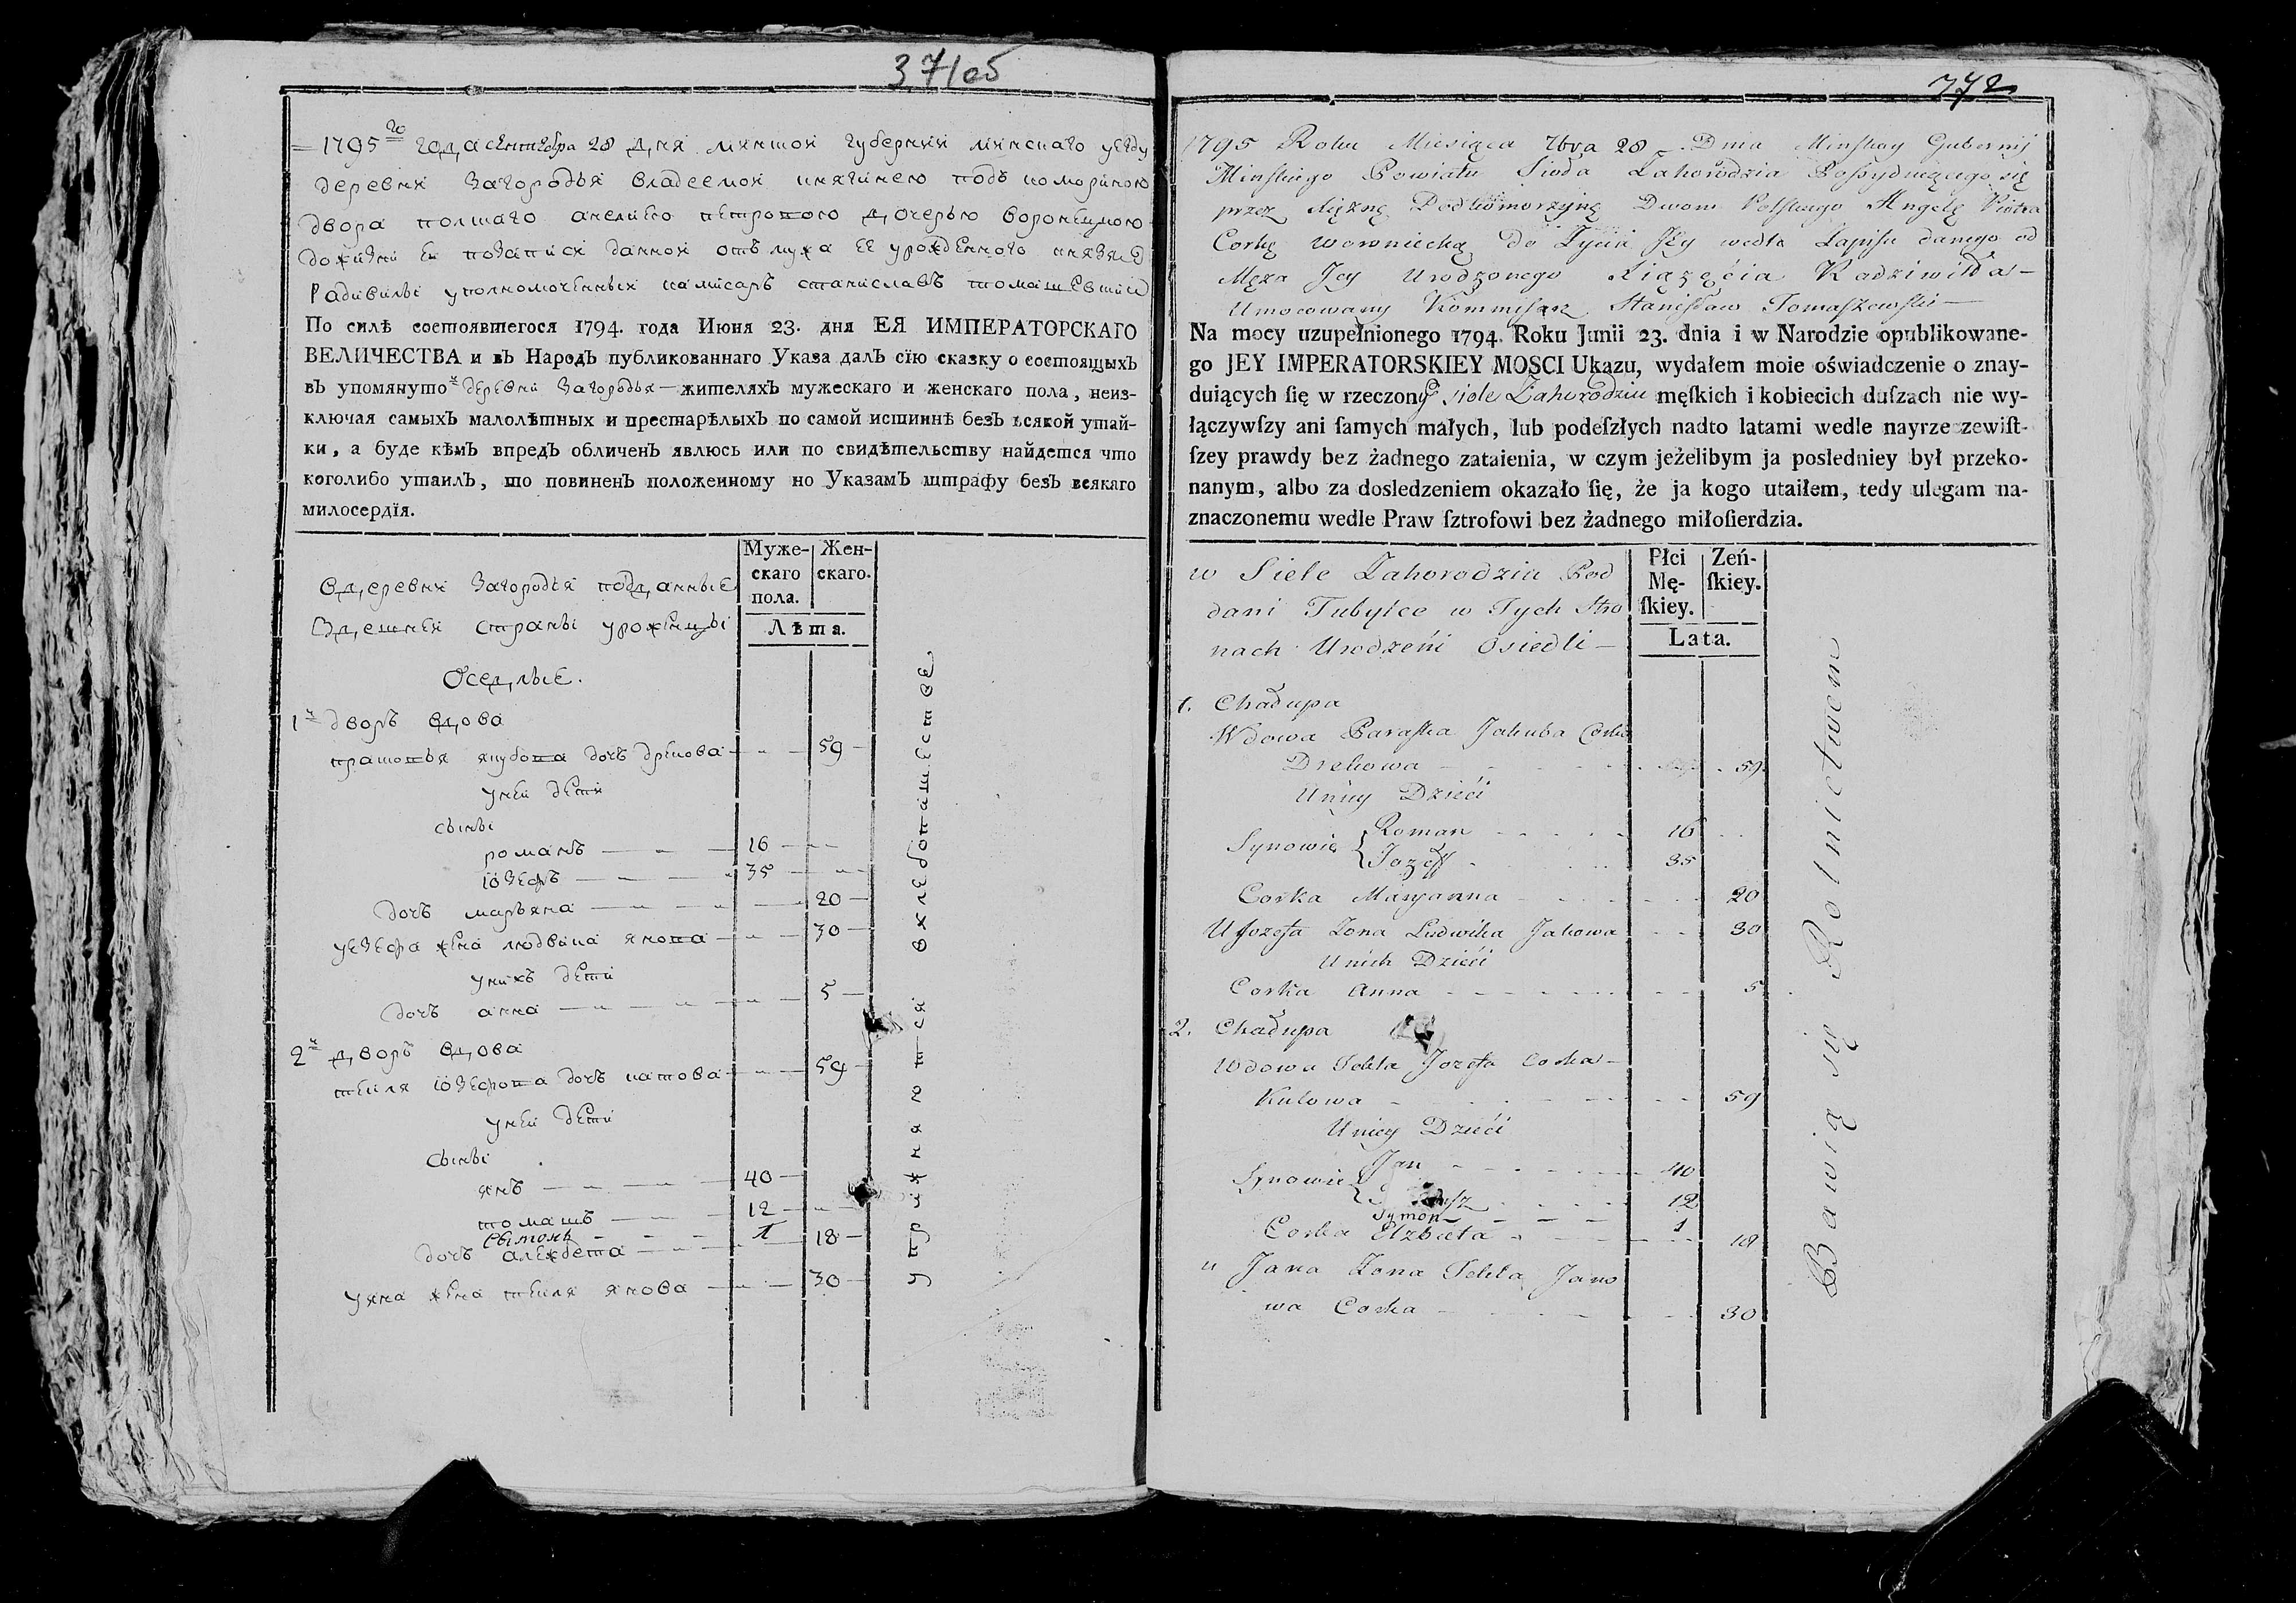 371об
1795го года сентября 28 дня минской губернии минскаго уезду
деревни Загородья владеемой княгинею подъ комориною
двора полскаго анелиею петровою дочерью воронецкою
дожизни ея позаписи данной отъ мужа ее урожденного князя
Радивилы уполномоченный камисаръ станиславъ томашевский
По силѣ состоявшегося 1794. года Июня 23. дня ЕЯ ИМПЕРАТОРСКАГО
ВЕЛИЧЕСТВА и въ Народъ публикованнаго Указа далъ сїю сказку о состоящыхъ
въ упомянутой деревни Загородья жителяхъ мужескаго и женскаго пола, неиз-
ключая самыхъ малолѣтных и престарѣлыхъ по самой истиннѣ безъ всякой утай-
ки, а буде кѣмъ впредь обличенъ явлюсь или по свидѣтельству найдется что
коголибо утаилъ, то повиненъ положенному по Указамъ штрафу безъ всякаго
милосердїя.
Муже-
скаго
пола.
Жен-
скаго.
Лѣта.
Вдеревни Загородья подданные
Здешней страны уроженцы
Оседлые.
1й дворъ вдова
прасковья якубова дочь дрекова 59
уней дети
сыны
романъ 16
iозефъ 35
дочь марьяна 20
уезефа жена людвика якова 30
унихъ дети
дочь анна 5
2й дворъ вдова
текля iозефова дочь катова 59
уней дети
сыны
янъ 40
томашъ 12
сымонъ 1
дочь алежбета 18
уяна жена текля янова 30
упражняются вхлебопашестве
372
1795 Roku Miesiąca 7bra 28 Dnia Minskoy Gubernij
Minskiego Powiatu Sioła Zahorodzia Possyduiącego się
przez Xiężnę Podkomorzynę Dworu Polskiego Angelę Piotra
Corkę Woroniecką do Życia Jey wedle Zapisu danego od
Męża Jey Urodzonego Xiążęcia Radziwiła
Umocowany Kommisarz Stanisław Tomaszewski
Na mocy uzupełnionego 1794. Roku Junii 23. dnia i w Narodzie opublikowane-
go JEY IMPERATORSKIEY MOSCI Ukazu, wydałem moie oświadczenie o znay-
duiących ſię w rzeczony siele Zahorodziu męſkich i kobiecich duſzach nie wy-
łączywſzy ani ſamych małych, lub podeſzłych nadto latami wedle nayrzeczewiſt-
ſzey prawdy bez żadnego zataienia, w czym jeżelibym ja posledniey był przeko-
nanym, albo za dosledzeniem okazało ſię, że ja kogo utaiłem, tedy ulegam na-
znaczonemu wedle Praw ſztrofowi bez żadnego miłoſierdzia.
Płci
Mę-
ſkiey.
Zeń-
ſkiey.
Lata.
w Siele Zahorodziu Pod
dani Tubylce w Tych Stro
nach Urodzeni Osiedli
1. Chałupa
Wdowa Paraska Jakuba Corka
Drekowa 59
Uniey Dzieci
Synowie Roman 16
Jozeff 35
Corka Maryanna 20
U Jozefa Zona Ludwika Jakowa 30
Unich Dzieci
Corka Anna 5
2. Chałupa
Wdowa Tekla Jozefa Corka
Kutowa 59
Uniey Dzieci
Synowie Jan 40
12
Symon 1
Corka Elzbieta 18
u Jana Zona Tekla Jano
wa Corka 30
Bawią się Rolnictwem